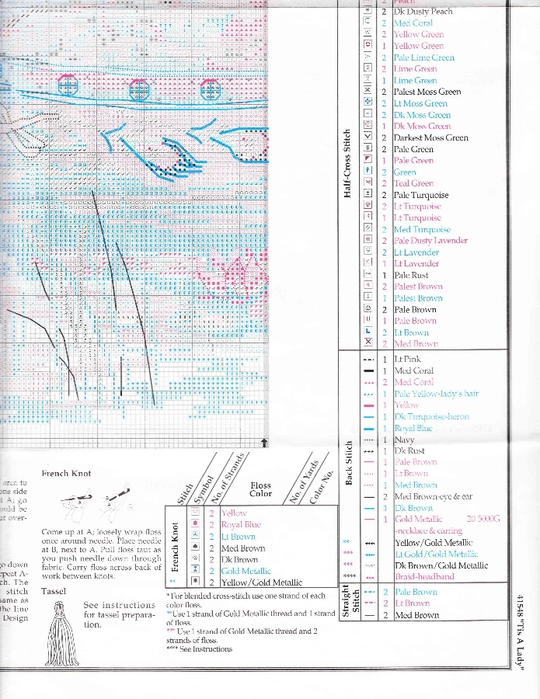 2 Peach
2 Dk Dusty Peach
2 Med Coral
2 Yellow Green
1 Yellow Green
2 Pale Lime Green
2 Lime Green
1 Lime Green
2 Palest Moss Green
2 Lt Moss Green
2 Dk Moss Green
1 Dk Moss Green
2 Darkest Moss Green
2 Pale Green
1 Pale Green
2 Green
2 Teal Green
2 Pale Turquoise
2 Lt Turquoise
1 Lt Turquoise
2 Med Turquoise
2 Pale Dusty Lavender
2 Lt Lavender
1 Lt Lavender
1 Pale Rust
2 Palest Brown
1 Palest Brown
2 Pale Brown
1 Pale Brown
2 Lt Brown
2 Med Brown
Half-Cross Stitch
1 Lt Pink
1 Med Coral
2 Med Coral
1 Pale Yellow-lady's hair
1 Yellow
1 Dk Turquoise-heron
1 Royal Blue
1 Navy
1 Dk Rust
1 Pale Brown
1 Lt Brown
1 Med Brown
2 Med Brown-eye & ear
1 Dk Brown
1 Gold Metallic 20 5000G
-necklace & earring
** Yellow/Gold Metallic
*** Lt Gold/Gold Metallic
*** Dk Brown/Gold Metallic
**** Braid-headband
Back Stitch
2 Pale Brown
2 Lt Brown
2 Med Brown
Straight Stitch
41548 "Tis A Lady"
French Knot
Come up at A; loosely wrap floss
once around needle. Place needle
at B, next to A. Pull floss taut as
you push needle down through
fabric. Carry floss across back of
work between knots.
Tassel
See instructions
for tassel prepara-
tion.
Stitch
Symbol
No. of Strands
Floss
Color
No. of Yards
Color No.
French Knot
2 Yellow
2 Royal Blue
2 Lt Brown
2 Med Brown
2 Dk Brown
2 Gold Metallic
** 2 Yellow/Gold Metallic
* For blended cross-stitch use one strand of each
color floss.
**Use 1 strand of Gold Metallic thread and 1 strand
of floss.
*** Use 1 strand of Gold Metallic and 2
strands of floss.
**** See Instructions
area to
one side
A; go
ould be
ut over-
go down
epeat A-
ch. The
stitch
same as
the line
Design